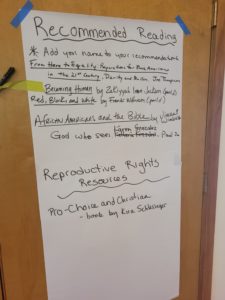 Recommended Reading
* Add your name to your recommendations
From Here to Equality, Reparations for Black Americans
in the 21st Century, Darity and Mullen,
Becoming Human by Zakiyyah Iman Jackson
Red, White and Black by Frank Wilderson
African Americans and the Bible by Vincent
God who sees Karen Gonzalez
Reproductive Rights
Resources
Pro-Choice and Christian
- book by Kira Schlesinger